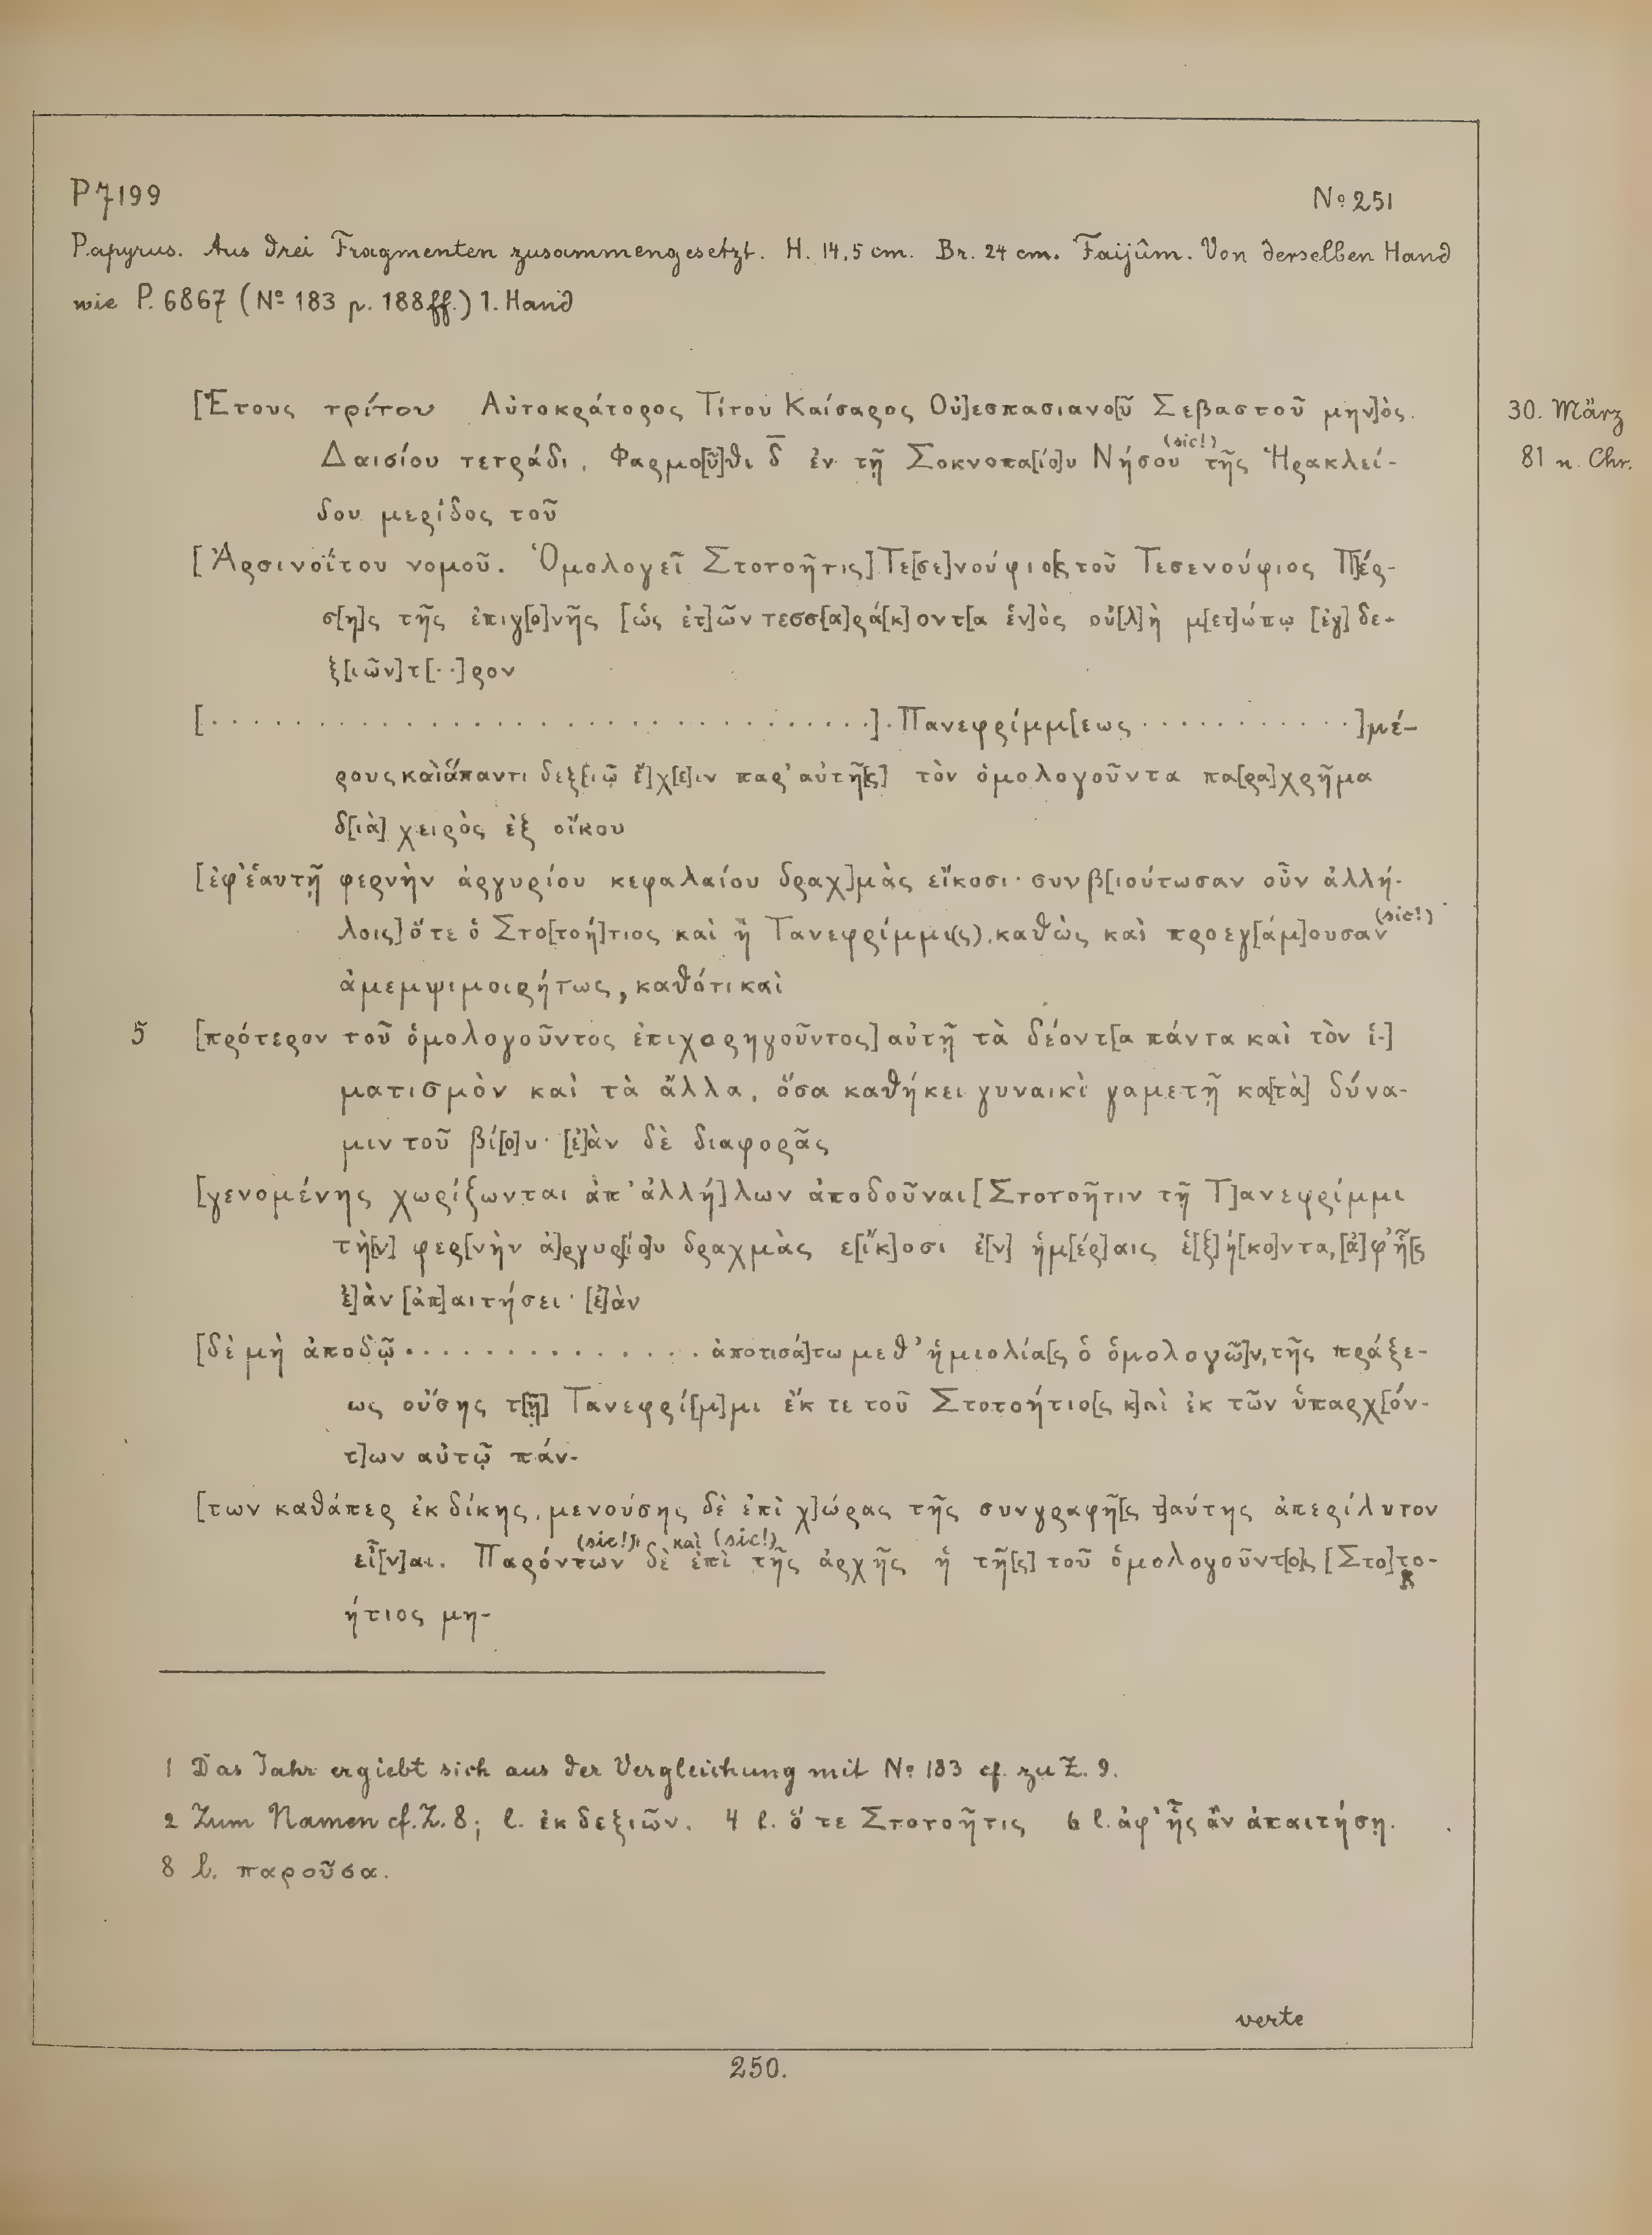 P 7199 № 251
Papyrus. Aus drei Fragmenten zusammengesetzt. H. 14,5 cm. Br. 24 cm. Faijûm. Von derselben Hand
wie P. 6867 (№ 183 p. 188ff.) 1. Hand
[Ἔτους τρίτου Αὐτοκράτορος Τίτου Καίσαρος Οὐ]εσπασιανο[ῦ Σεβαστοῦ μην]ὸς 30. März
Δαισίου τετράδι, Φαρμο[ῦ]θι δ̅ ἐν τῇ Σοκνοπα[ίο]υ Νήσου (sic!) τῆς Ἡρακλεί- 81 n. Chr.
δου μερίδος τοῦ
[Ἀρσινοΐτου νομοῦ. Ὁμολογεῖ Στοτοῆτις] Τε[σε]νούφιο[ς τοῦ Τεσενούφιος Π]έρ-
σ[η]ς τῆς ἐπιγ[ο]νῆς [ὡς ἐτ]ῶν τεσσ[α]ρά[κ]οντ[α ἑν]ὸς οὐ[λ]ὴ μ[ετ]ώπῳ [ἐγ] δε-
ξ[ιῶν] τ[··]ρον
[······························]·Πανεφρίμμ[εως ···········] μέ-
ρους καὶ ἅπαντι δεξ[ιῷ ἔ]χ[ε]ιν παρ' αὐτῆ[ς] τὸν ὁμολογοῦντα πα[ρα]χρῆμα
δ[ιὰ] χειρὸς ἐξ οἴκου
[ἐφ' ἑαυτῇ φερνὴν ἀργυρίου κεφαλαίου δραχ]μὰς εἴκοσι· συνβ[ιούτωσαν οὖν ἀλλή-
λοις] ὅτε ὁ Στο[τοή]τιος καὶ ἡ Τανεφρίμμι(ς), καθὼς καὶ προεγ[άμ]ουσαν (sic!)
ἀμεμψιμοιρήτως, καθότι καὶ
5 [πρότερον τοῦ ὁμολογοῦντος ἐπιχορηγοῦντος] αὐτῇ τὰ δέοντ[α πάντα καὶ τὸν ἱ-]
ματισμὸν καὶ τὰ ἄλλα, ὅσα καθήκει γυναικὶ γαμετῇ κα[τὰ] δύνα-
μιν τοῦ βί[ο]υ· [ἐ]ὰν δὲ διαφορᾶς
[γενομένης χωρίζωνται ἀπ' ἀλλή]λων ἀποδοῦναι [Στοτοῆτιν τῇ Τ]ανεφρίμμι
τὴ[ν] φερ[νὴν ἀ]ργυρ[ίο]υ δραχμὰς ε[ἴκ]οσι ἐ[ν] ἡμ[έρ]αις ἑ[ξ]ή[κο]ντα, [ἀ]φ' ἧ[ς
ἐ]ὰν [ἀπ]αιτήσει· [ἐ]ὰν
[δὲ μὴ ἀποδῷ ·············· ἀποτισά]τω μεθ' ἡμιολία[ς ὁ ὁμολογῶ]ν, τῆς πράξε-
ως οὔσης τ[ῇ] Τανεφρί[μ]μι ἔκ τε τοῦ Στοτοήτιο[ς κ]αὶ ἐκ τῶν ὑπαρχ[όν-
τ]ων αὐτῷ πάν-
[των καθάπερ ἐκ δίκης, μενούσης δὲ ἐπὶ χ]ώρας τῆς συνγραφῆ[ς τ]αύτης ἀπερίλυτον
εἶ[ν]αι. Παρόντων (sic!) δὲ καὶ ἐπὶ (sic!) τῆς ἀρχῆς ἡ τῆ[ς] τοῦ ὁμολογοῦντ[ο]ς [Στο]το-
ήτιος μη-
1 Das Jahr ergiebt sich aus der Vergleichung mit № 183 cf. zu Z. 9.
2 Zum Namen cf. Z. 8; l. ἐκ δεξιῶν. 4 l. ὅ τε Στοτοῆτις 6 l. ἀφ' ἧς ἂν ἀπαιτήσῃ.
8 l. παροῦσα.
verte
250.